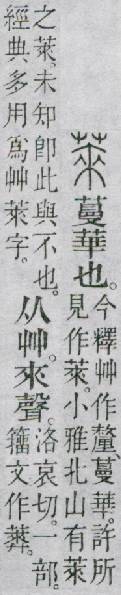 萊蔓華也。今釋艸作釐、蔓華。許所
見作萊。小雅北山有萊
之萊、未知卽此與不也。从艸。來聲。洛哀切。一部。
經典多用爲艸萊字。籒文作𦿆。